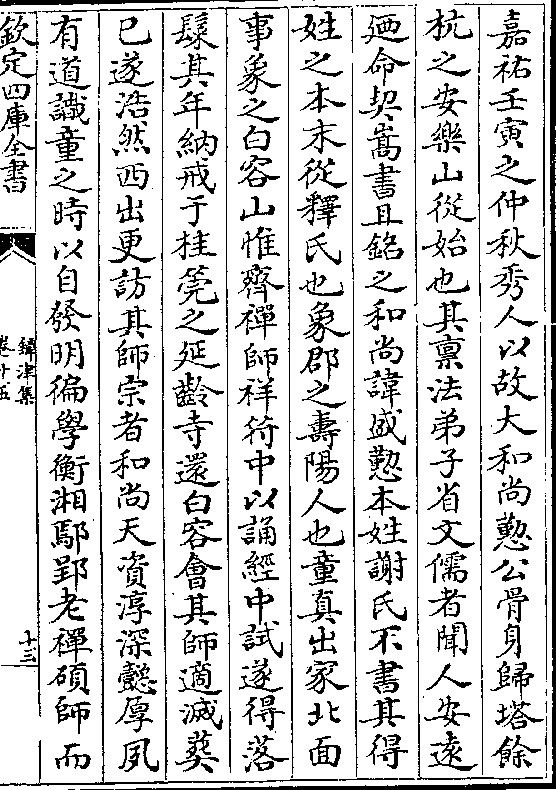 嘉祐壬寅之仲秋秀人以故大和尚懃公骨身歸塔餘
杭之安樂山從始也其禀法弟子省文儒者聞人安遠
廼命契嵩書且銘之和尚諱盛懃本姓謝氏不書其得
姓之本末從釋氏也象郡之壽陽人也童真出家北面
事象之白容山惟齊禪師祥符中以誦經中試遂得落
髮其年納戒于桂筦之延齡寺還白容會其師適滅葬
已遂浩然西出更訪其師宗者和尚天資淳深懿厚夙
有道識童之時以自發明徧學衡湘鄢郢老禪碩師而
欽定四庫全書
鐔津集
卷十五
十三